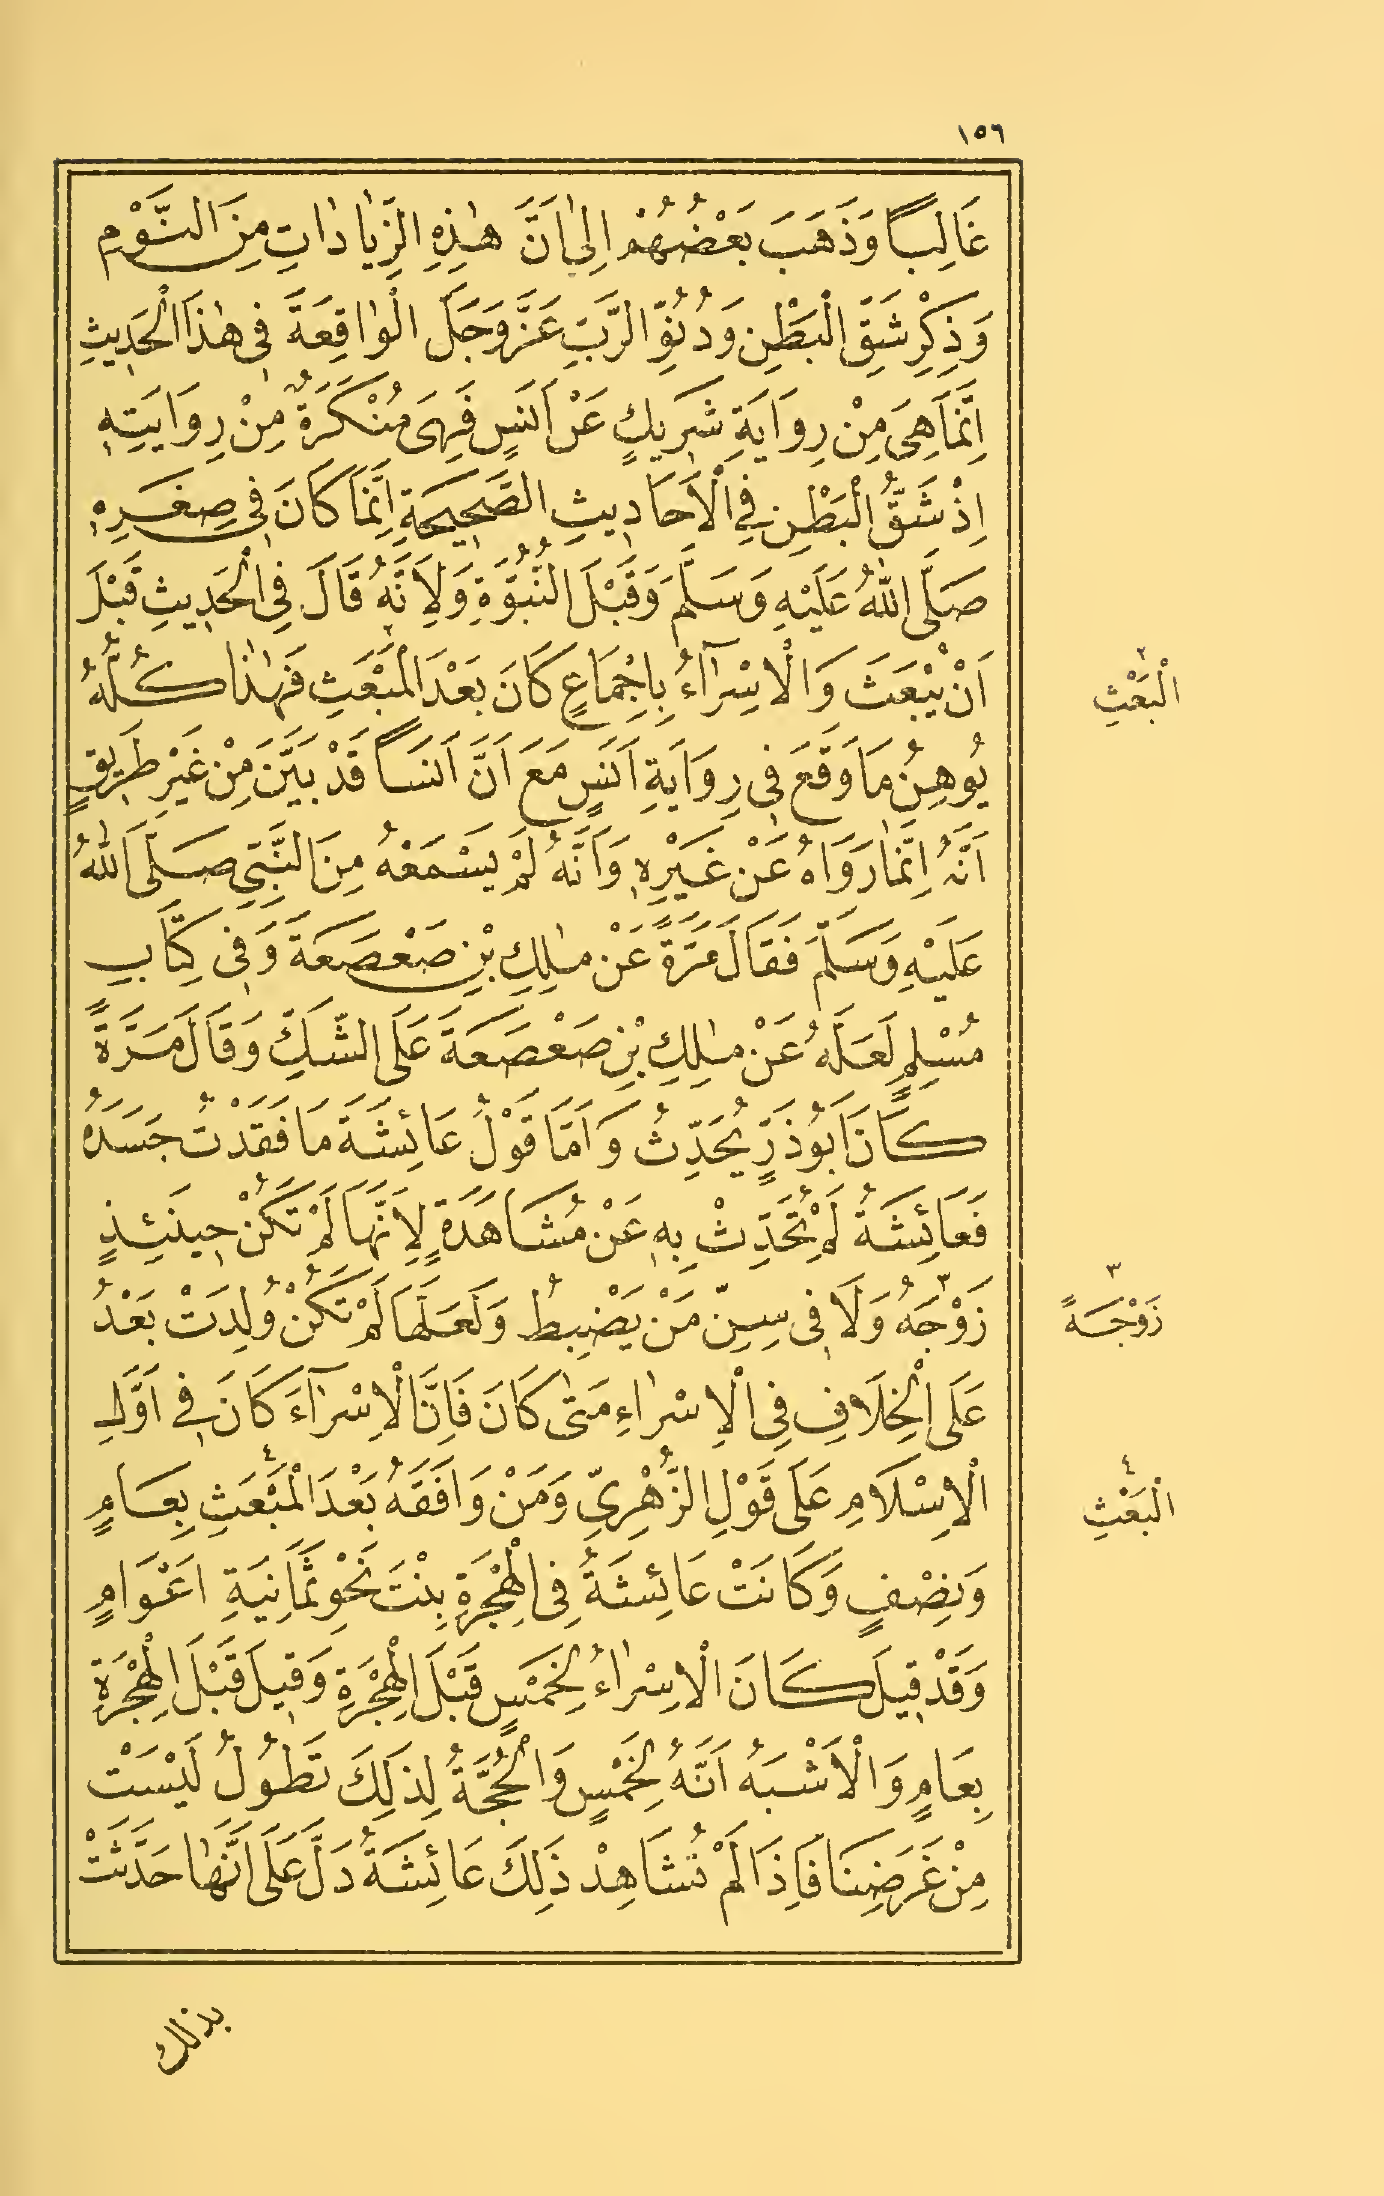 ١٥٦
غَالِبًا وَذَهَبَ بَعْضُهُمْ اِلٰى اَنَّ هٰذِهِ الزِّيَادَاتِ مِنَ النَّوْمِ
وَذِكْرِ شَقِّ الْبَطْنِ وَدُنُوِّ الرَّبِّ عَزَّ وَجَلَّ الْوَاقِعَةَ فِى هٰذَا الْحَدِيثِ
اِنَّمَا هِىَ مِنْ رِوَايَةِ شَرِيكٍ عَنْ اَنَسٍ فَهِىَ مُنْكَرَةٌ مِنْ رِوَايَتِهِ
اِذْ شَقُّ الْبَطْنِ فِى الْاَحَادِيثِ الصَّحِيحَةِ اِنَّمَا كَانَ فِى صِغَرِهِ
صَلَّى اللّٰهُ عَلَيْهِ وَسَلَّمَ وَقَبْلَ النُّبُوَّةِ وَلِاَنَّهُ قَالَ فِى الْحَدِيثِ قَبْلَ
اَنْ يُبْعَثَ وَالْاِسْرَآءُ بِاِجْمَاعٍ كَانَ بَعْدَ الْمَبْعَثِ فَهٰذَا كُلُّهُ
يُوهِنُ مَا وَقَعَ فِى رِوَايَةِ اَنَسٍ مَعَ اَنَّ اَنَسًا قَدْ بَيَّنَ مِنْ غَيْرِ طَرِيقٍ
اَنَّهُ اِنَّمَا رَوَاهُ عَنْ غَيْرِهِ وَاَنَّهُ لَمْ يَسْمَعْهُ مِنَ النَّبِىِّ صَلَّى اللّٰهُ
عَلَيْهِ وَسَلَّمَ فَقَالَ مَرَّةً عَنْ مٰلِكِ بْنِ صَعْصَعَةَ وَفِى كِتَابِ
مُسْلِمٍ لَعَلَّهُ عَنْ مٰلِكِ بْنِ صَعْصَعَةَ عَلَى الشَّكِّ وَقَالَ مَرَّةً
كَانَ اَبُوذَرٍّ يُحَدِّثُ وَاَمَّا قَوْلُ عَائِشَةَ مَا فَقَدْتُ جَسَدَهُ
فَعَائِشَةُ لَمْ تُحَدِّثْ بِهِ عَنْ مُشَاهَدَةٍ لِاَنَّهَا لَمْ تَكُنْ حِينَئِذٍ
زَوْجَهُ ٣ وَلَا فِى سِنِّ مَنْ يَضْبِطُ وَلَعَلَّهَا لَمْ تَكُنْ وُلِدَتْ بَعْدُ
عَلَى الْخِلَافِ فِى الْاِسْرَاءِ مَتٰى كَانَ فَاِنَّ الْاِسْرَآءَ كَانَ فِى اَوَّلِ
الْاِسْلَامِ عَلَى قَوْلِ الزُّهْرِىِّ وَمَنْ وَافَقَهُ بَعْدَ الْمَبْعَثِ ٤ بِعَامٍ
وَنِصْفٍ وَكَانَتْ عَائِشَةُ فِى الْهِجْرَةِ بِنْتَ نَحْوِ ثَمَانِيَةِ اَعْوَامٍ
وَقَدْ قِيلَ كَانَ الْاِسْرَاءُ لِخَمْسٍ قَبْلَ الْهِجْرَةِ وَقِيلَ قَبْلَ الْهِجْرَةِ
بِعَامٍ وَالْاَشْبَهُ اَنَّهُ لِخَمْسٍ وَالْحُجَّةُ لِذٰلِكَ تَطُولُ لَيْسَتْ
مِنْ غَرَضِنَا فَاِذَا لَمْ تُشَاهِدْ ذٰلِكَ عَائِشَةُ دَلَّ عَلَى اَنَّهَا حَدَّثَتْ
بذلك
٢
الْبَعْثِ
٣
زَوْجَةً
٤
الْبَعْثِ